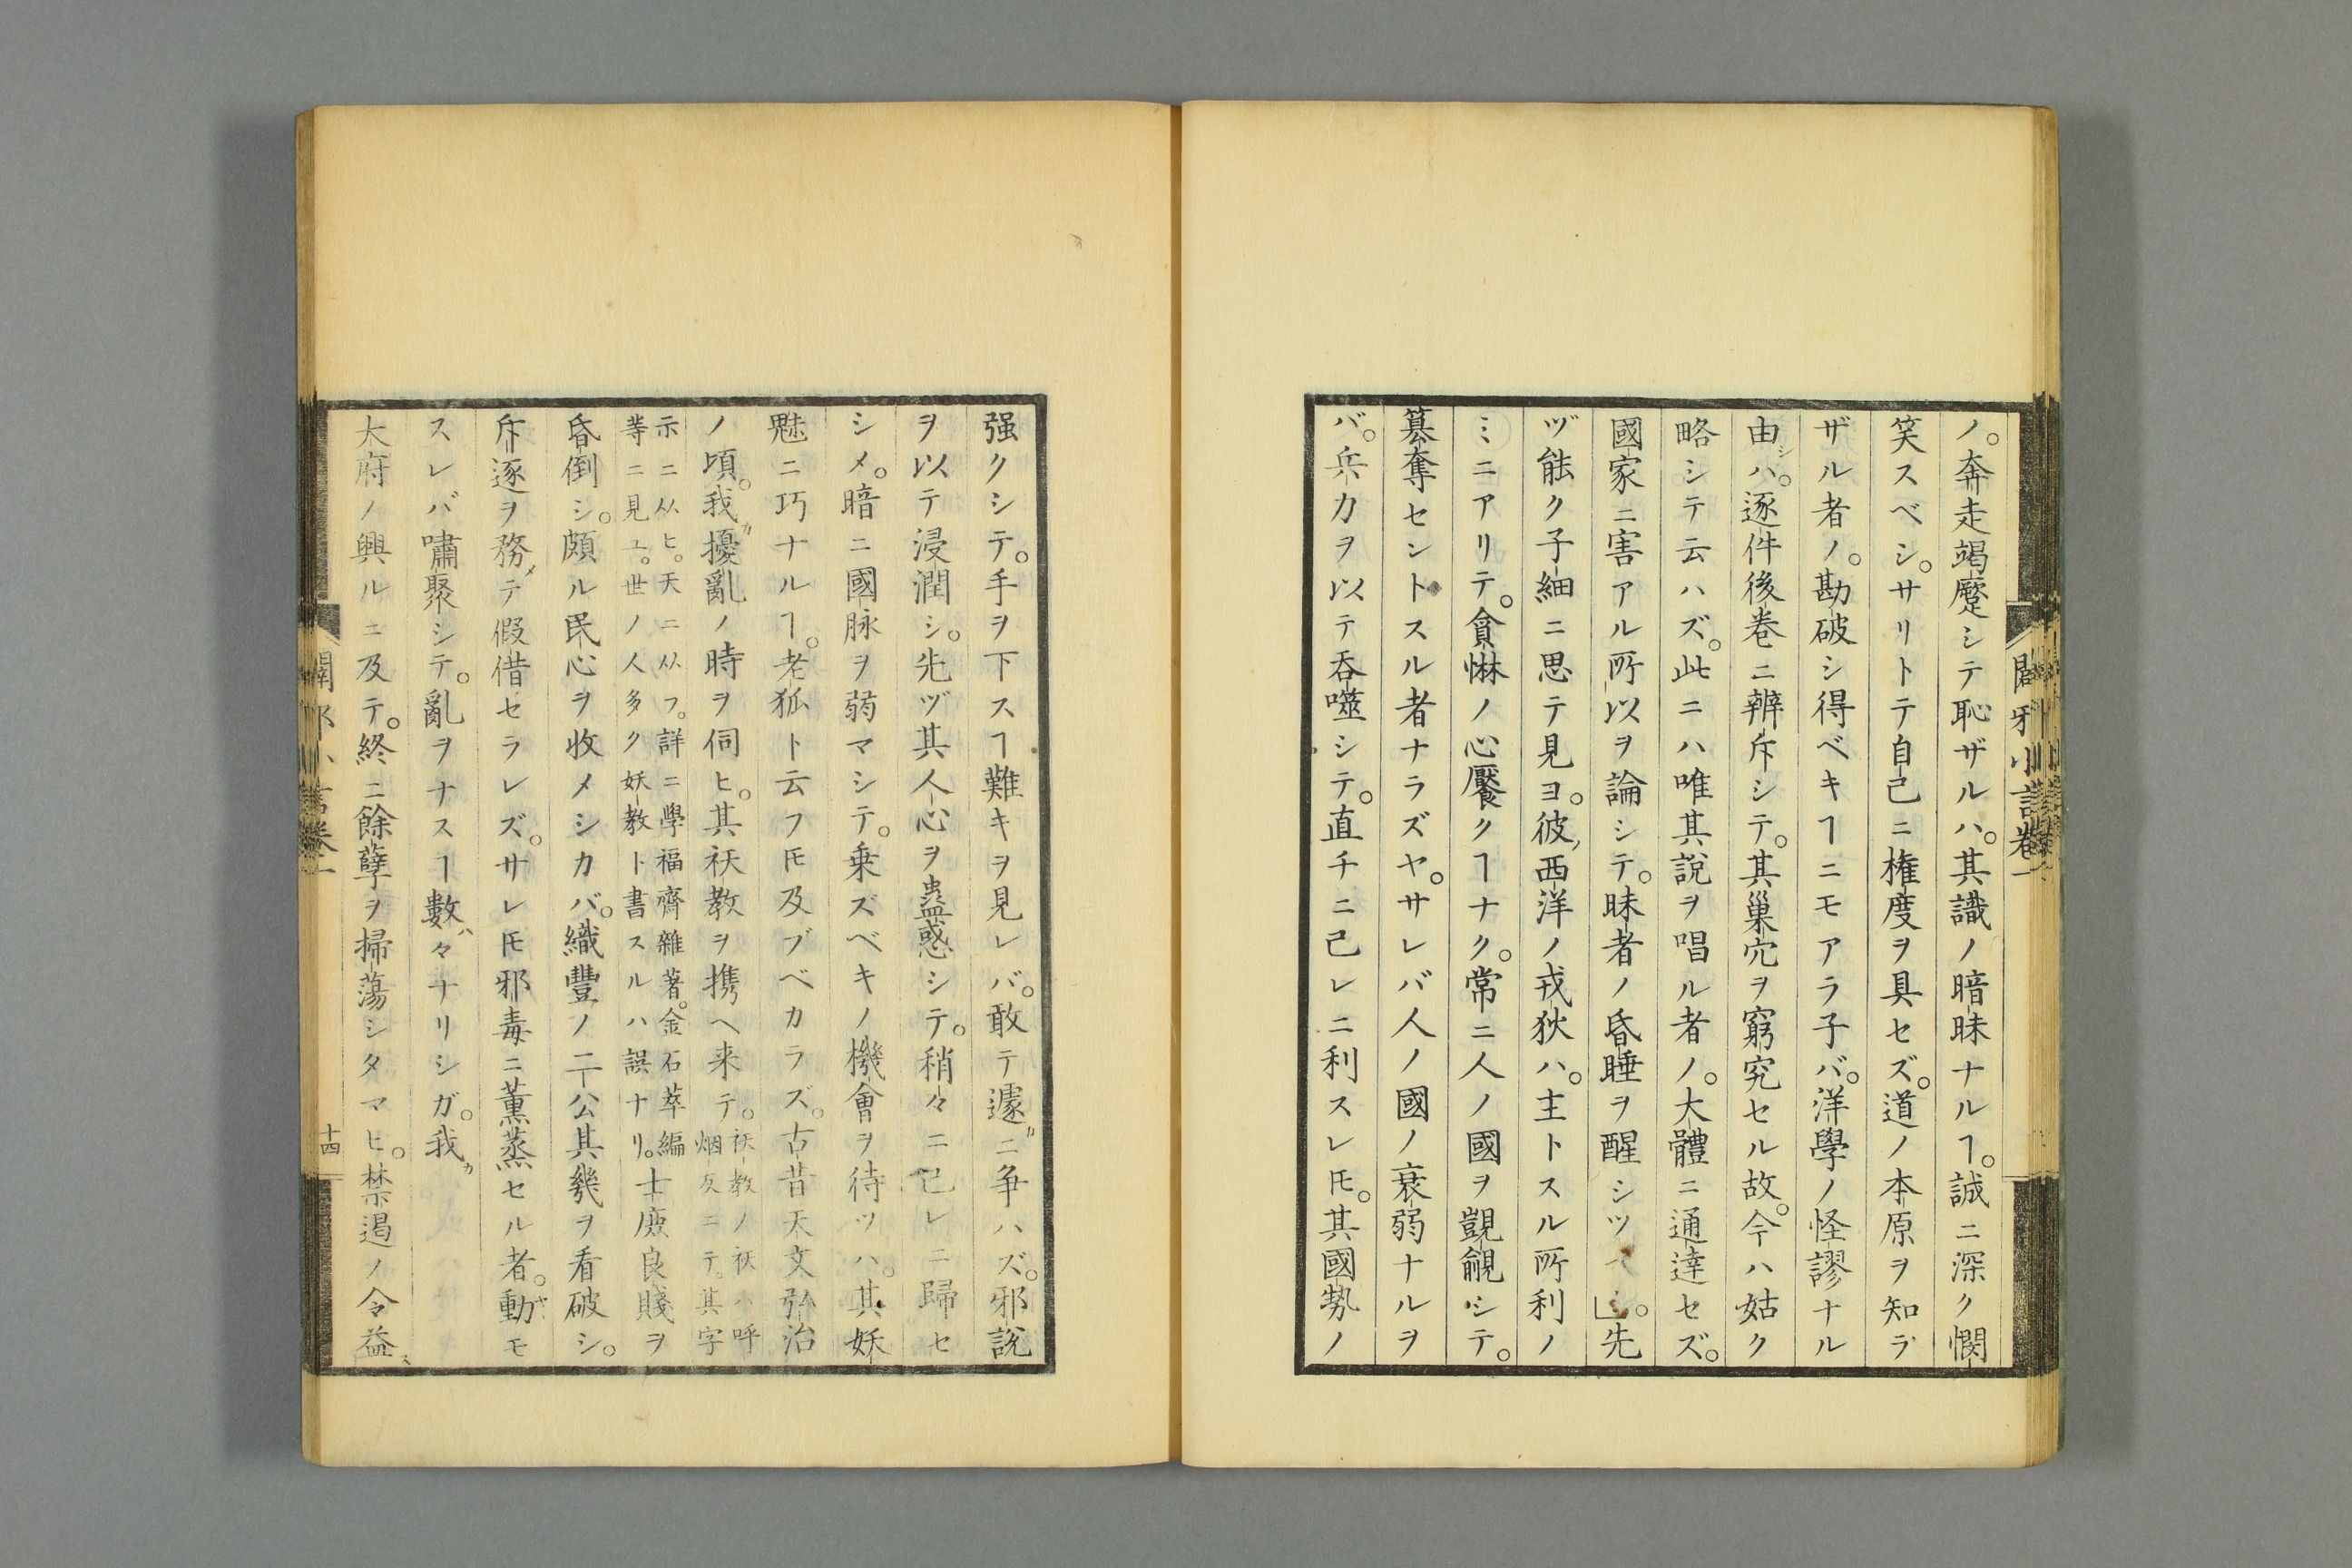 闢邪小言卷一
ノ。奔走竭蹷シテ恥ザルハ。其識ノ暗昧ナルヿ。誠ニ深ク憫
笑スベシ。サリトテ自己ニ権度ヲ具セズ。道ノ本原ヲ知ラ
ザル者ノ。勘破シ得ベキヿニモアラ子バ。洋學ノ怪謬ナル
由シハ。逐件後巻ニ辨斥シテ。其巢穴ヲ窮究セル故。今ハ姑ク
略シテ云ハズ。此ニハ唯其說ヲ唱ル者ノ。大體ニ通達セズ。
國家ニ害アル所以ヲ論シテ。昧者ノ昏睡ヲ醒シツ。」先
ヅ能ク子細ニ思テ見ヨ。彼ノ西洋ノ戎狄ハ。主トスル所利ノ
ミニアリテ。貪惏ノ心饜クヿナク。常ニ人ノ國ヲ覬覦シテ。
簒奪セントスル者ナラズヤ。サレバ人ノ國ノ衰弱ナルヲ
バ。兵力ヲ以テ吞噬シテ。直チニ己レニ利スレㇳモ。其國勢ノ
强クシテ。手ヲ下スヿ難キヲ見レバ。敢テ遽カニ争ハズ。邪說
ヲ以テ浸潤シ。先ヅ其人心ヲ蠱惑シテ。稍々ニ己レニ歸セ
シメ。暗ニ國脉ヲ弱マシテ。乗ズベキノ機會ヲ待ツハ。其妖
魅ニ巧ナルヿ。老狐ト云フㇳモ及ブベカラズ。古昔天文弘治
ノ頃。我カ擾亂ノ時ヲ伺ヒ。其祆教ヲ携ヘ来テ。祆教ノ祆ハ呼
烟反ニテ。其字
示ニ从ヒ。天ニ从フ。詳ニ學福齋雜著。金石萃編
等ニ見ユ。世ノ人多ク妖教ト書スルハ誤ナリ。士庶良賤ヲ
昏倒シ。頗ル民心ヲ收メシカバ。織豐ノ二公其幾ヲ看破シ。
斥逐ヲ務メテ假借セラレズ。サレㇳモ邪毒ニ薫蒸セル者。動ヤモ
スレバ嘯聚シテ。亂ヲナスヿ數ハ々ナリシガ。我カ
大府ノ興ルニ及テ。終ニ餘孽ヲ掃蕩シタマヒ。禁遏ノ令益ス
闢邪小言卷一
十四